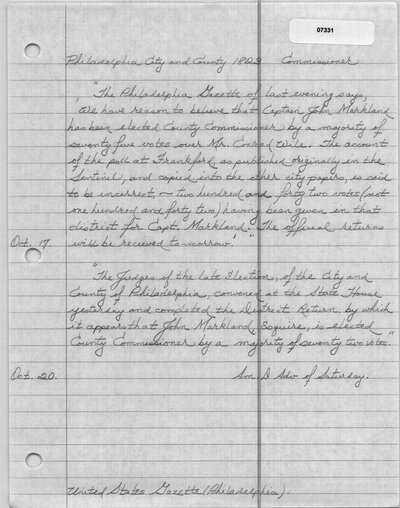 07331
Philadelphia City and County 1823 Commissioner
"The Philadelphia Gazette of last evening says,
'We have reason to believe that Captain John Markland
has been elected County Commissioner by a majority of
seventy five votes over Mr. Conrad Wile. The account
of the poll at Frankford, as published originally in the
Sentinel, and copied into the other city papers, is said
to be incorrect, — two hundred and forty two votes (not
one hundred and forty two) having been given in that
district for Capt. Markland. The official returns
Oct. 17 will be recieved to-morrow.'"
"The Judges of the late Election, of the City and
County of Philadelphia, convened at the State House
yesterday and completed the District Return, by which
it appears that John Markland, Esquire, is elected
County Commissioner by a majority of seventy two votes."
Oct. 20. Am. D. Adv. of Saturday.
United States Gazette (Philadelphia).